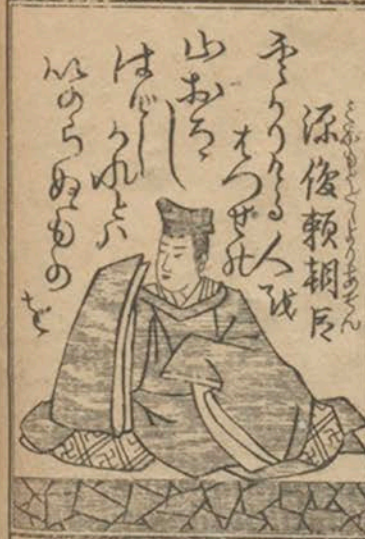 みなもとのとしよりあそん
源俊頼朝臣
うかりける人を
はつせの
山おろし
はげし
かれとは
いのらぬもの
を